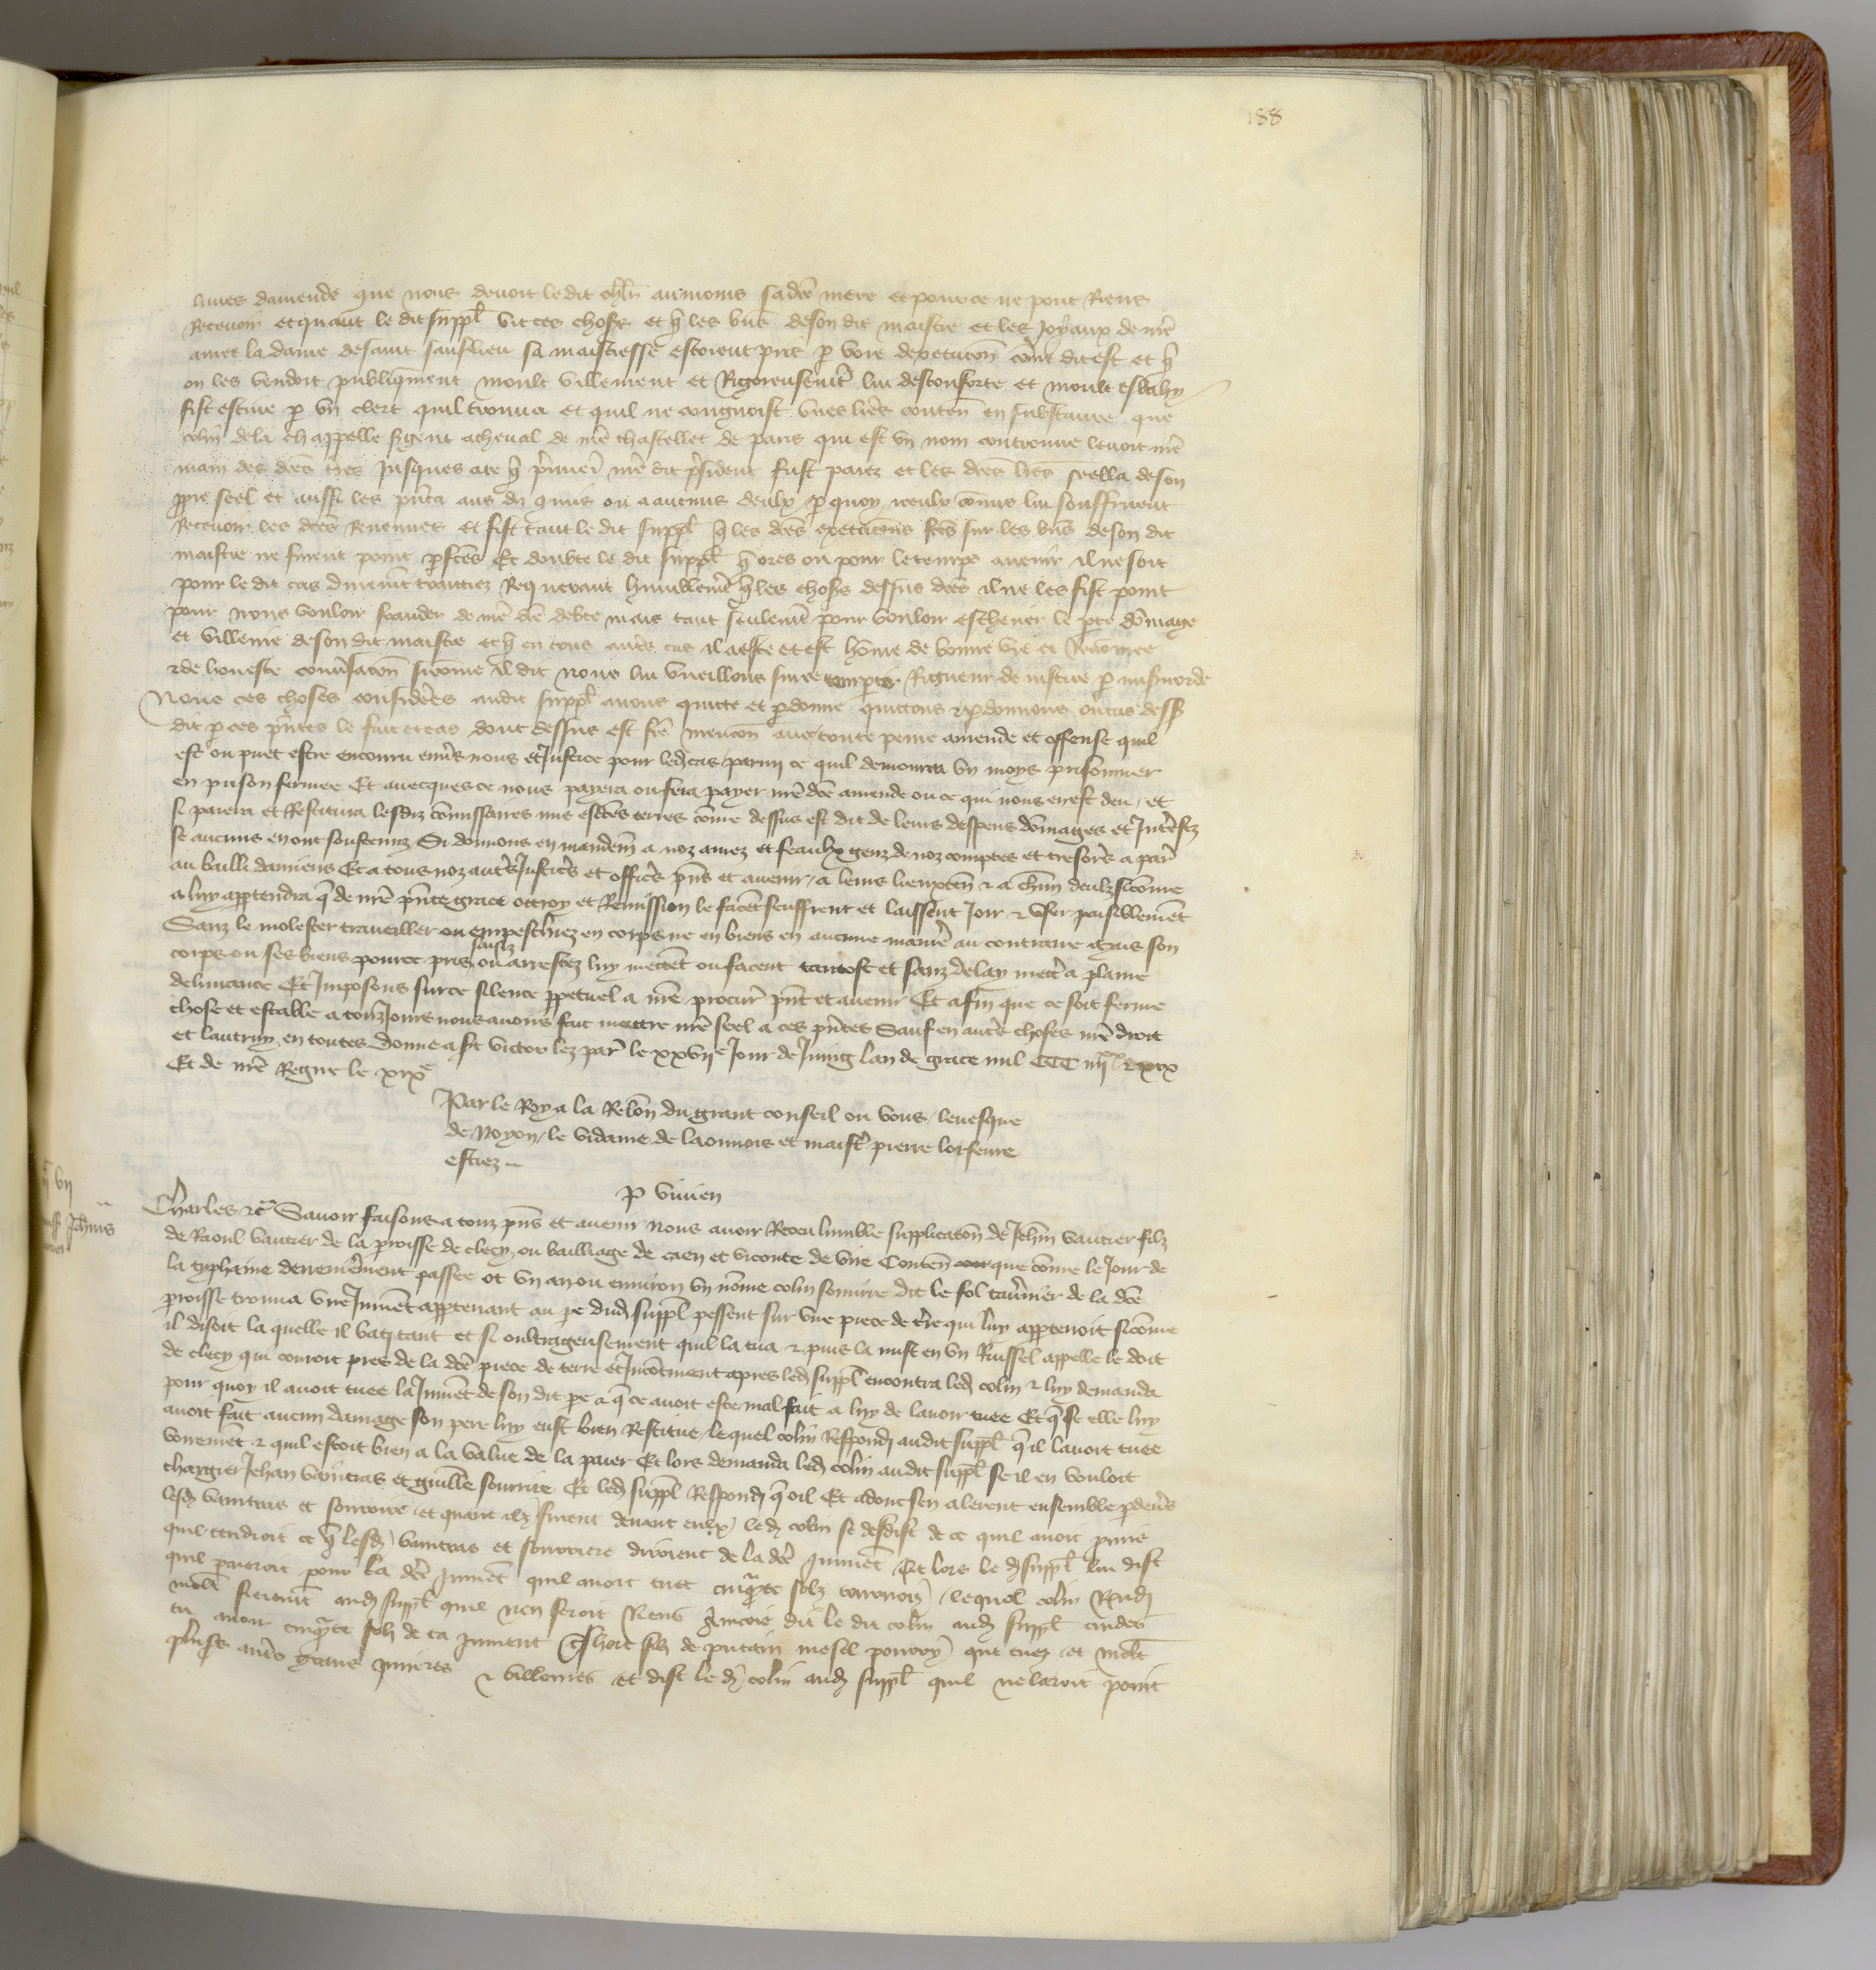 188
livres damende que nous devoit ledit aumoins sadce mere et pour ce ne pout Riens
Recevoir et quant le dit suppl vit ces choses et q les bns de son dit maistre et les joyaux de nre
amee la dame de saint sauflieu sa maistresse estoient pris p voie dexecucon come dit est et q
on les vendoit publiqment moult villement et Rigoreusement lui desconforte et moult esbahy
fist escrire p un clerc quil trouva et quil ne congnoist unes lres conten en substance que
colin de la chappelle sgent acheval de nre chastellet de paris qui est un nom controuve levoit nre
main des dces tres jusques ace q nre dit president fust paiez et les dces lres seella de son
ppre seel et aussi les pnta aus diz comis ou a aucuns deulx p quoy iceulx comis lui souffrirent
Recevoir les dces Revenues et fist tant le dit suppl q les dces execucons fces sur les bns de son dit
maistre ne furent point pfces Et doubte le dit suppl q ores ou pour le temps avenir il ne soit
pour le dit cas durement traittiez Requerant humblemt q les choses dessus dces il ne les fist point
pour nous vouloir frauder de nre dce debte mais tant seulemt pour vouloir eschever le pte domage
et villenie de son dit maistre et q en tous autres cas il a este et est home de bonne vie et Renomee
et de honeste conversacon sicome il dit nous lui vueillons sur ce temprer Rigueur de justice p misericorde
Nous ces choses considerees audit suppl avons quicte et pdonne quictons et pdonnons ou cas dess
dit p ces pntes le fait et cas dont dessus est fce mencon avec toute peine amende et offense quil
est ou puet estre encouru envs nous et Justice pour led cas parmi ce quil demourra un moys prisonnier
en prison fermee Et avecques ce nous payera ou fera payer nre dce amende ou ce qui nous en est deu et
si paiera et Restitura lesdiz comissaires mis esdces terres come dessus est dit de leurs despens domages et Interestz
se aucuns en ont soustenuz Si donnons en mandem a noz amez et feaulx genz de noz comptes et tresorers a par
au bailli damiens Et a tous noz autrs Justicrs et officrs pns et avenir a leurs lieuxten et a chun deulz sicome
a luy apptendra q de nre pnte grace ottroy et Remission le facent seuffrent et laissent Joir et user paisiblement
Sanz le molester travailler ou empeschiez en corps ne en biens en aucune manre au contraire Mais son
corps ou ses biens pource pris saisiz ou arrestez luy mettent ou facent tantost et sanz delay mettre a plaine
delivrance Et Imposons sur ce silence ppetuel a nre procur pnt et avenir Et afin que ce soit ferme
chose et estable a touzjours nous avons fait mettre nre seel a ces pntes Sauf en autrs choses nre droit
et lautruy en toutes Donne a st victor lez par le xxvije Jour de Juing lan de grace mil CCC iiijxx
Et de nre Regne le xixe
Par le Roy a la Relon du grant conseil ou vous levesque
de Noyon le vidame de laonnois et maistre pierre lorfevre
estiez
P vivien
Charles etc Savoir faisons a touz pns et avenir nous avoir Receu lumble supplicacon de Jehan vautier filz
de Raoul vautier de la proisse de clecy ou bailliage de caen et viconte de vire Conten que come le Jour de
la typhaine derrenierement passee ot un an ou environ un nome colin dit le fol tavernier de la dce
proisse trouva une Jument apptenant au pe dud suppl pessent sur une piece de tre qui luy apptenoit sicome
il disoit la quelle il bati tant et si oultrageusement quil la tua et puis la mist en un Ruissel appelle le doit
de clecy qui couroit pres de la dce piece de terre et Incontinent apres led suppl encontra led colin et luy demanda
pour quoy il avoit tuee la Jument de son dit pe et q ce avoit este mal fait a luy de lavoir tuee Et q se elle luy
avoit fait aucun damage son pere luy eust bien Restitue lequel colin Respondi audit suppl q il lavoit tuee
voirement et quil estoit bien a la value de la paier Et lors demanda led colin audit suppl se il en vouloit
chargier Jehan vauttras et guille Et led suppl Respondi q oil Et adonc sen alerent ensemble pdevers
lesd vauttras et et quant ilz furent devant eulx led colin se desdist de ce quil avoit pmis
quil tendroit ce q lesd vauttras et diroient de la dce jument Et lors le d suppl lui dist
quil paieroit pour la dce jument quil avoit tuee cinqte solz tournois lequel colin Rndi
molt fierement aud suppl quil nen feroit Riens Aincois dit le dit colin aud suppl cuides
tu avoir cinqte solz de ta jument filz de putain mesel pourry que tuez et molt
plusrs autres grans injures et villenies et dist le d colin aud suppl quil ne lairoit point